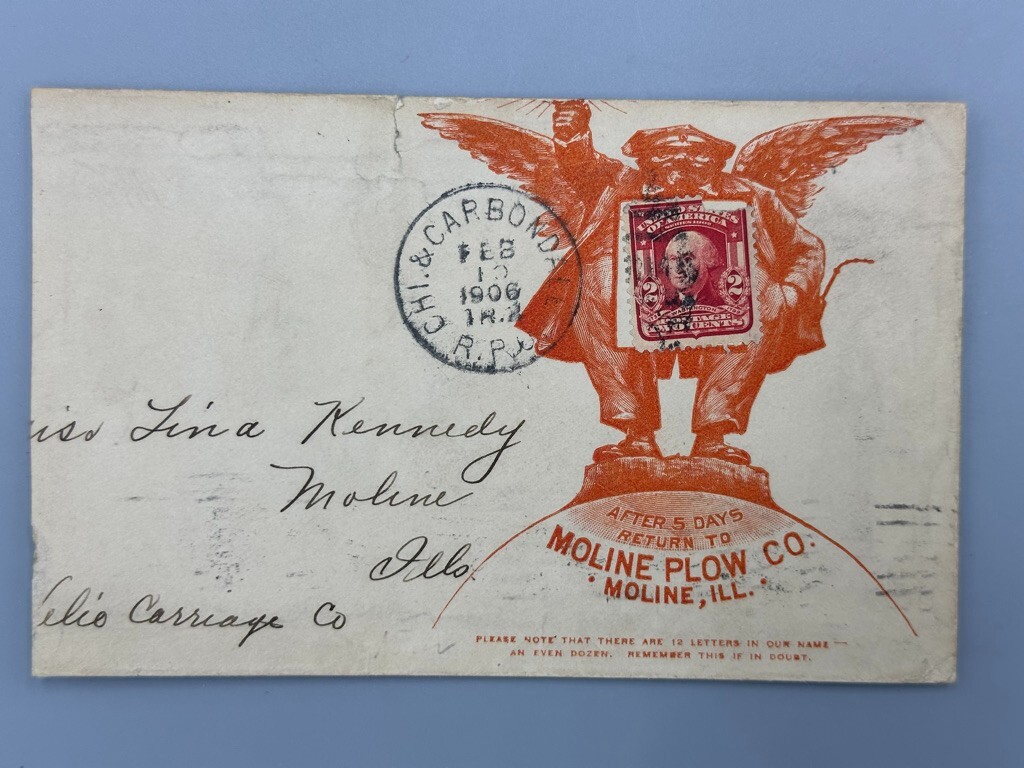 CHI. & CARBONDALE
FEB
1906
R.P.O.
UNITED STATES
OF AMERICA
SERIES 1902
2 2
TWO CENTS
iss Lina Kennedy
Moline
Ills.
elie Carriage Co
AFTER 5 DAYS
RETURN TO
MOLINE PLOW CO.
• MOLINE, ILL. •
PLEASE NOTE THAT THERE ARE 12 LETTERS IN OUR NAME —
AN EVEN DOZEN. REMEMBER THIS IF IN DOUBT.